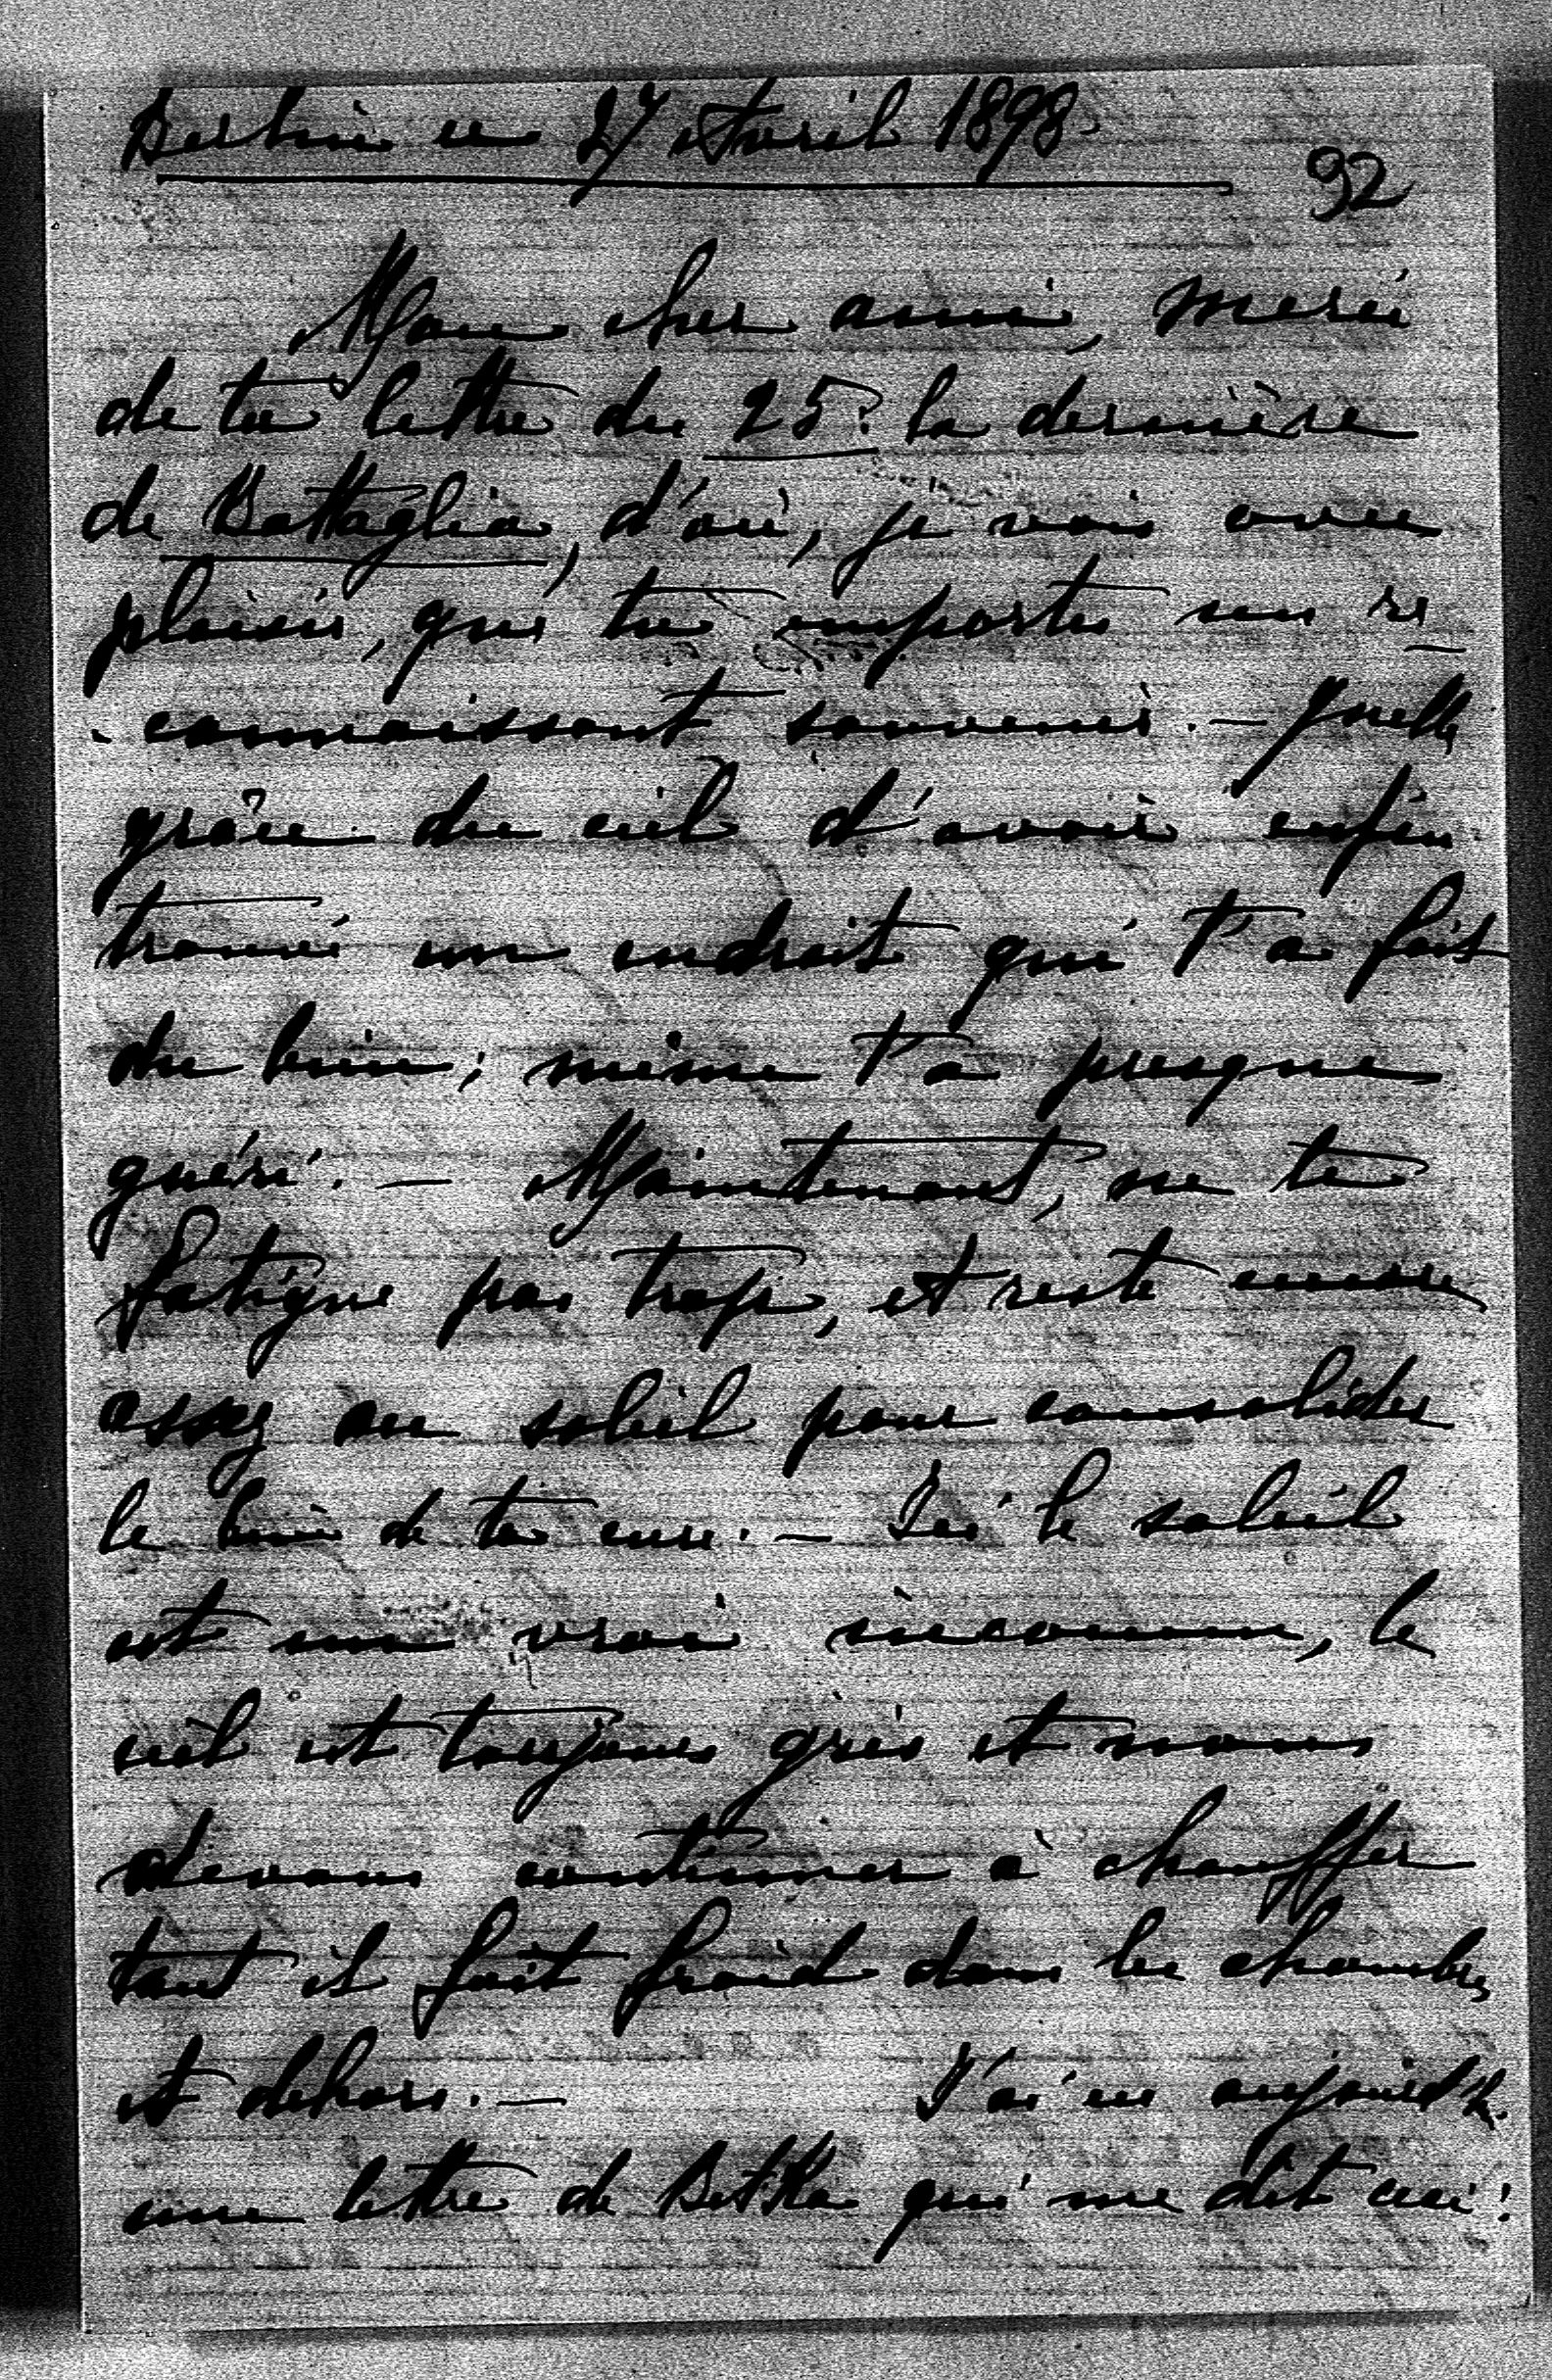 Berlin ce 27 Avril 1898.
92
Mon cher ami, merci
de ta lettre du 25. la dernière
de Battaglia, d'où, je vois avec
plaisir, que tu emportes un re-
-connaissant souvenir. - Quelle
grâce du ciel d'avoir enfin
trouvé un endroit qui t'a fait
du bien; même t'a presque
guéri. - Maintenant, ne te
fatigue pas trop, et reste encore
assez au soleil pour consolider
le bien de ta cure. - Ici le soleil
est un vrai inconnu, le
ciel est toujours gris et nous
devons continuer à chauffer
tant il fait froid dans les chambres
et dehors. - J'ai eu aujourd'h.
une lettre de Betka qui me dit ceci: